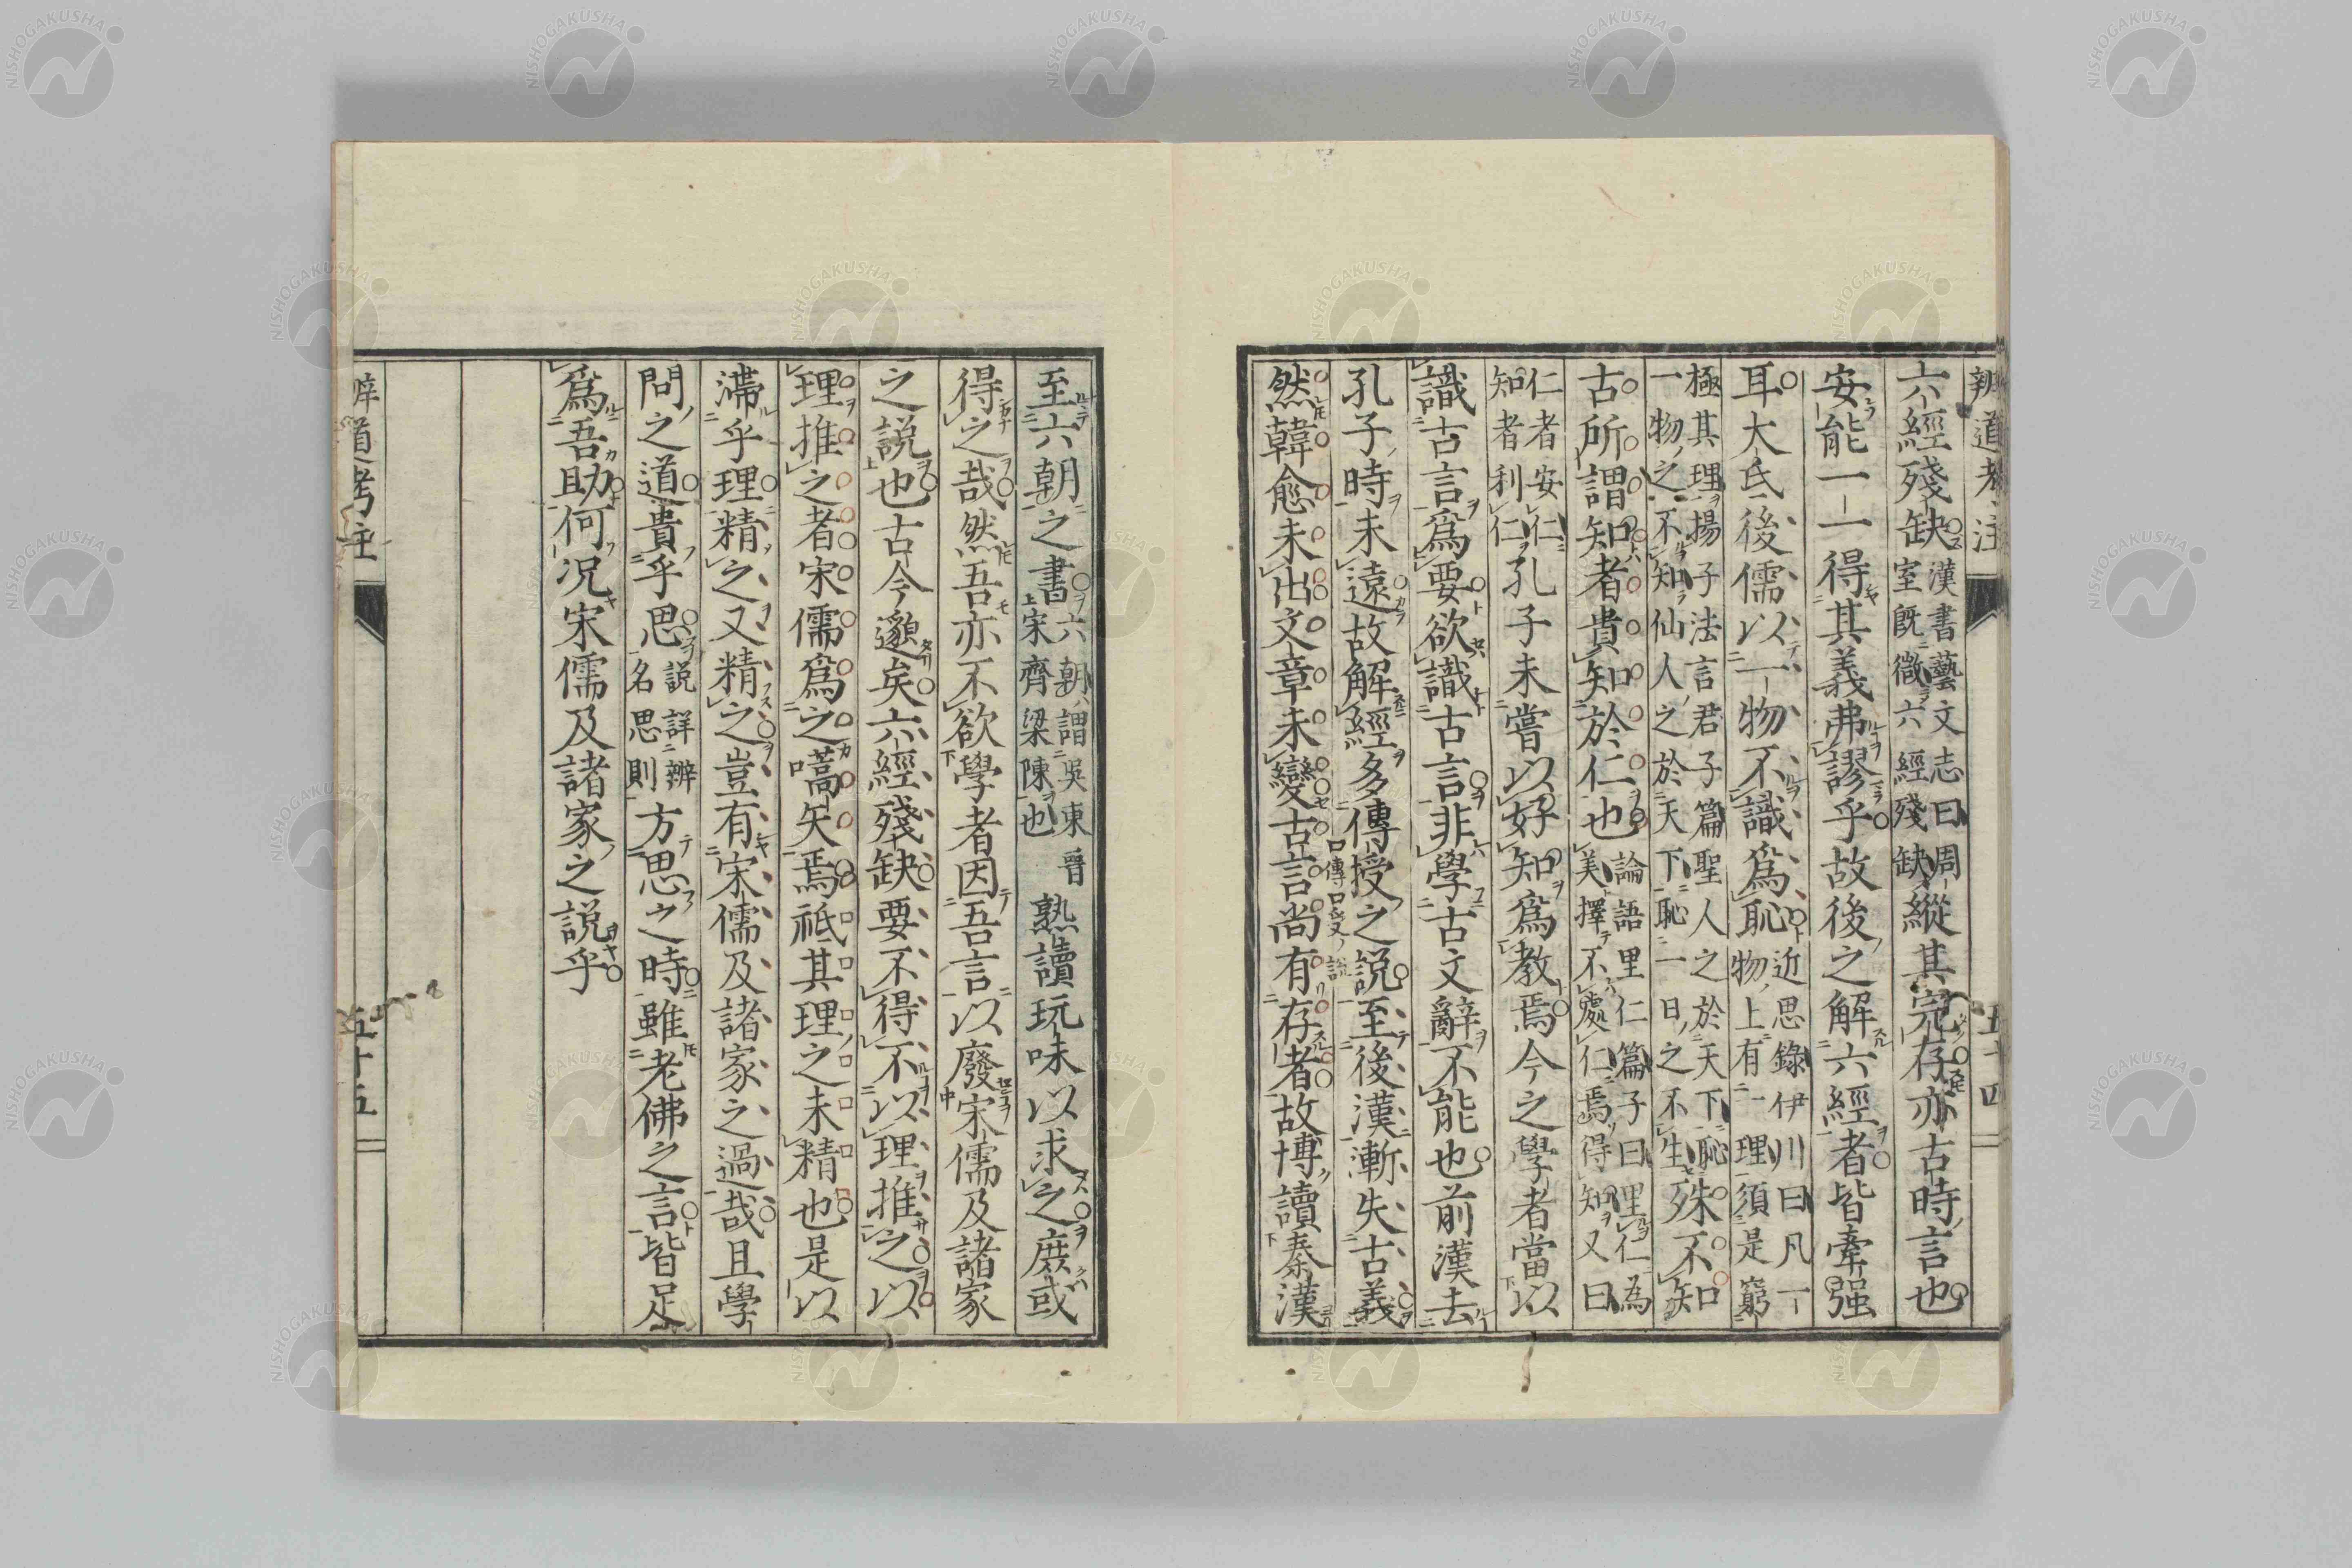 辨道考注
五十四
六經殘缺漢書藝文志曰周室旣微六經殘缺縱其完存亦古時言也
安能一一得其義弗謬乎故後之解六經者皆牽强
耳大氐後儒以一物不識爲恥近思錄伊川曰凡一物上有一理須是窮
極其理揚子法言君子篇聖人之於天下恥一物之不知仙人之於天下恥一日之不生殊不知
古所謂知者貴知於仁也論語里仁篇子曰里仁為美擇不處仁焉得知又曰
仁者安仁知者利仁孔子未嘗以好知爲教焉今之學者當以
識古言爲要欲識古言非學古文辭不能也前漢去
孔子時未遠故解經多傳授之說至後漢漸失古義
口傳口受ノ說
然韓愈未出文章未變古言尚有存者故博讀秦漢
至六朝之書六朝謂吳東晉宋齊梁陳也熟讀玩味以求之庶或
得之哉然吾亦不欲學者因吾言以廢宋儒及諸家
之說也古今邈矣六經殘缺要不得不以理推之以
理推之者宋儒爲之嚆矢焉祗其理之未精也是以
滯乎理精之又精之豈有宋儒及諸家之過哉且學
問之道貴乎思說詳辨名思則方思之時雖老佛之言皆足
爲吾助何况宋儒及諸家之說乎
辨道考注
五十五
NISHOGAKUSHA